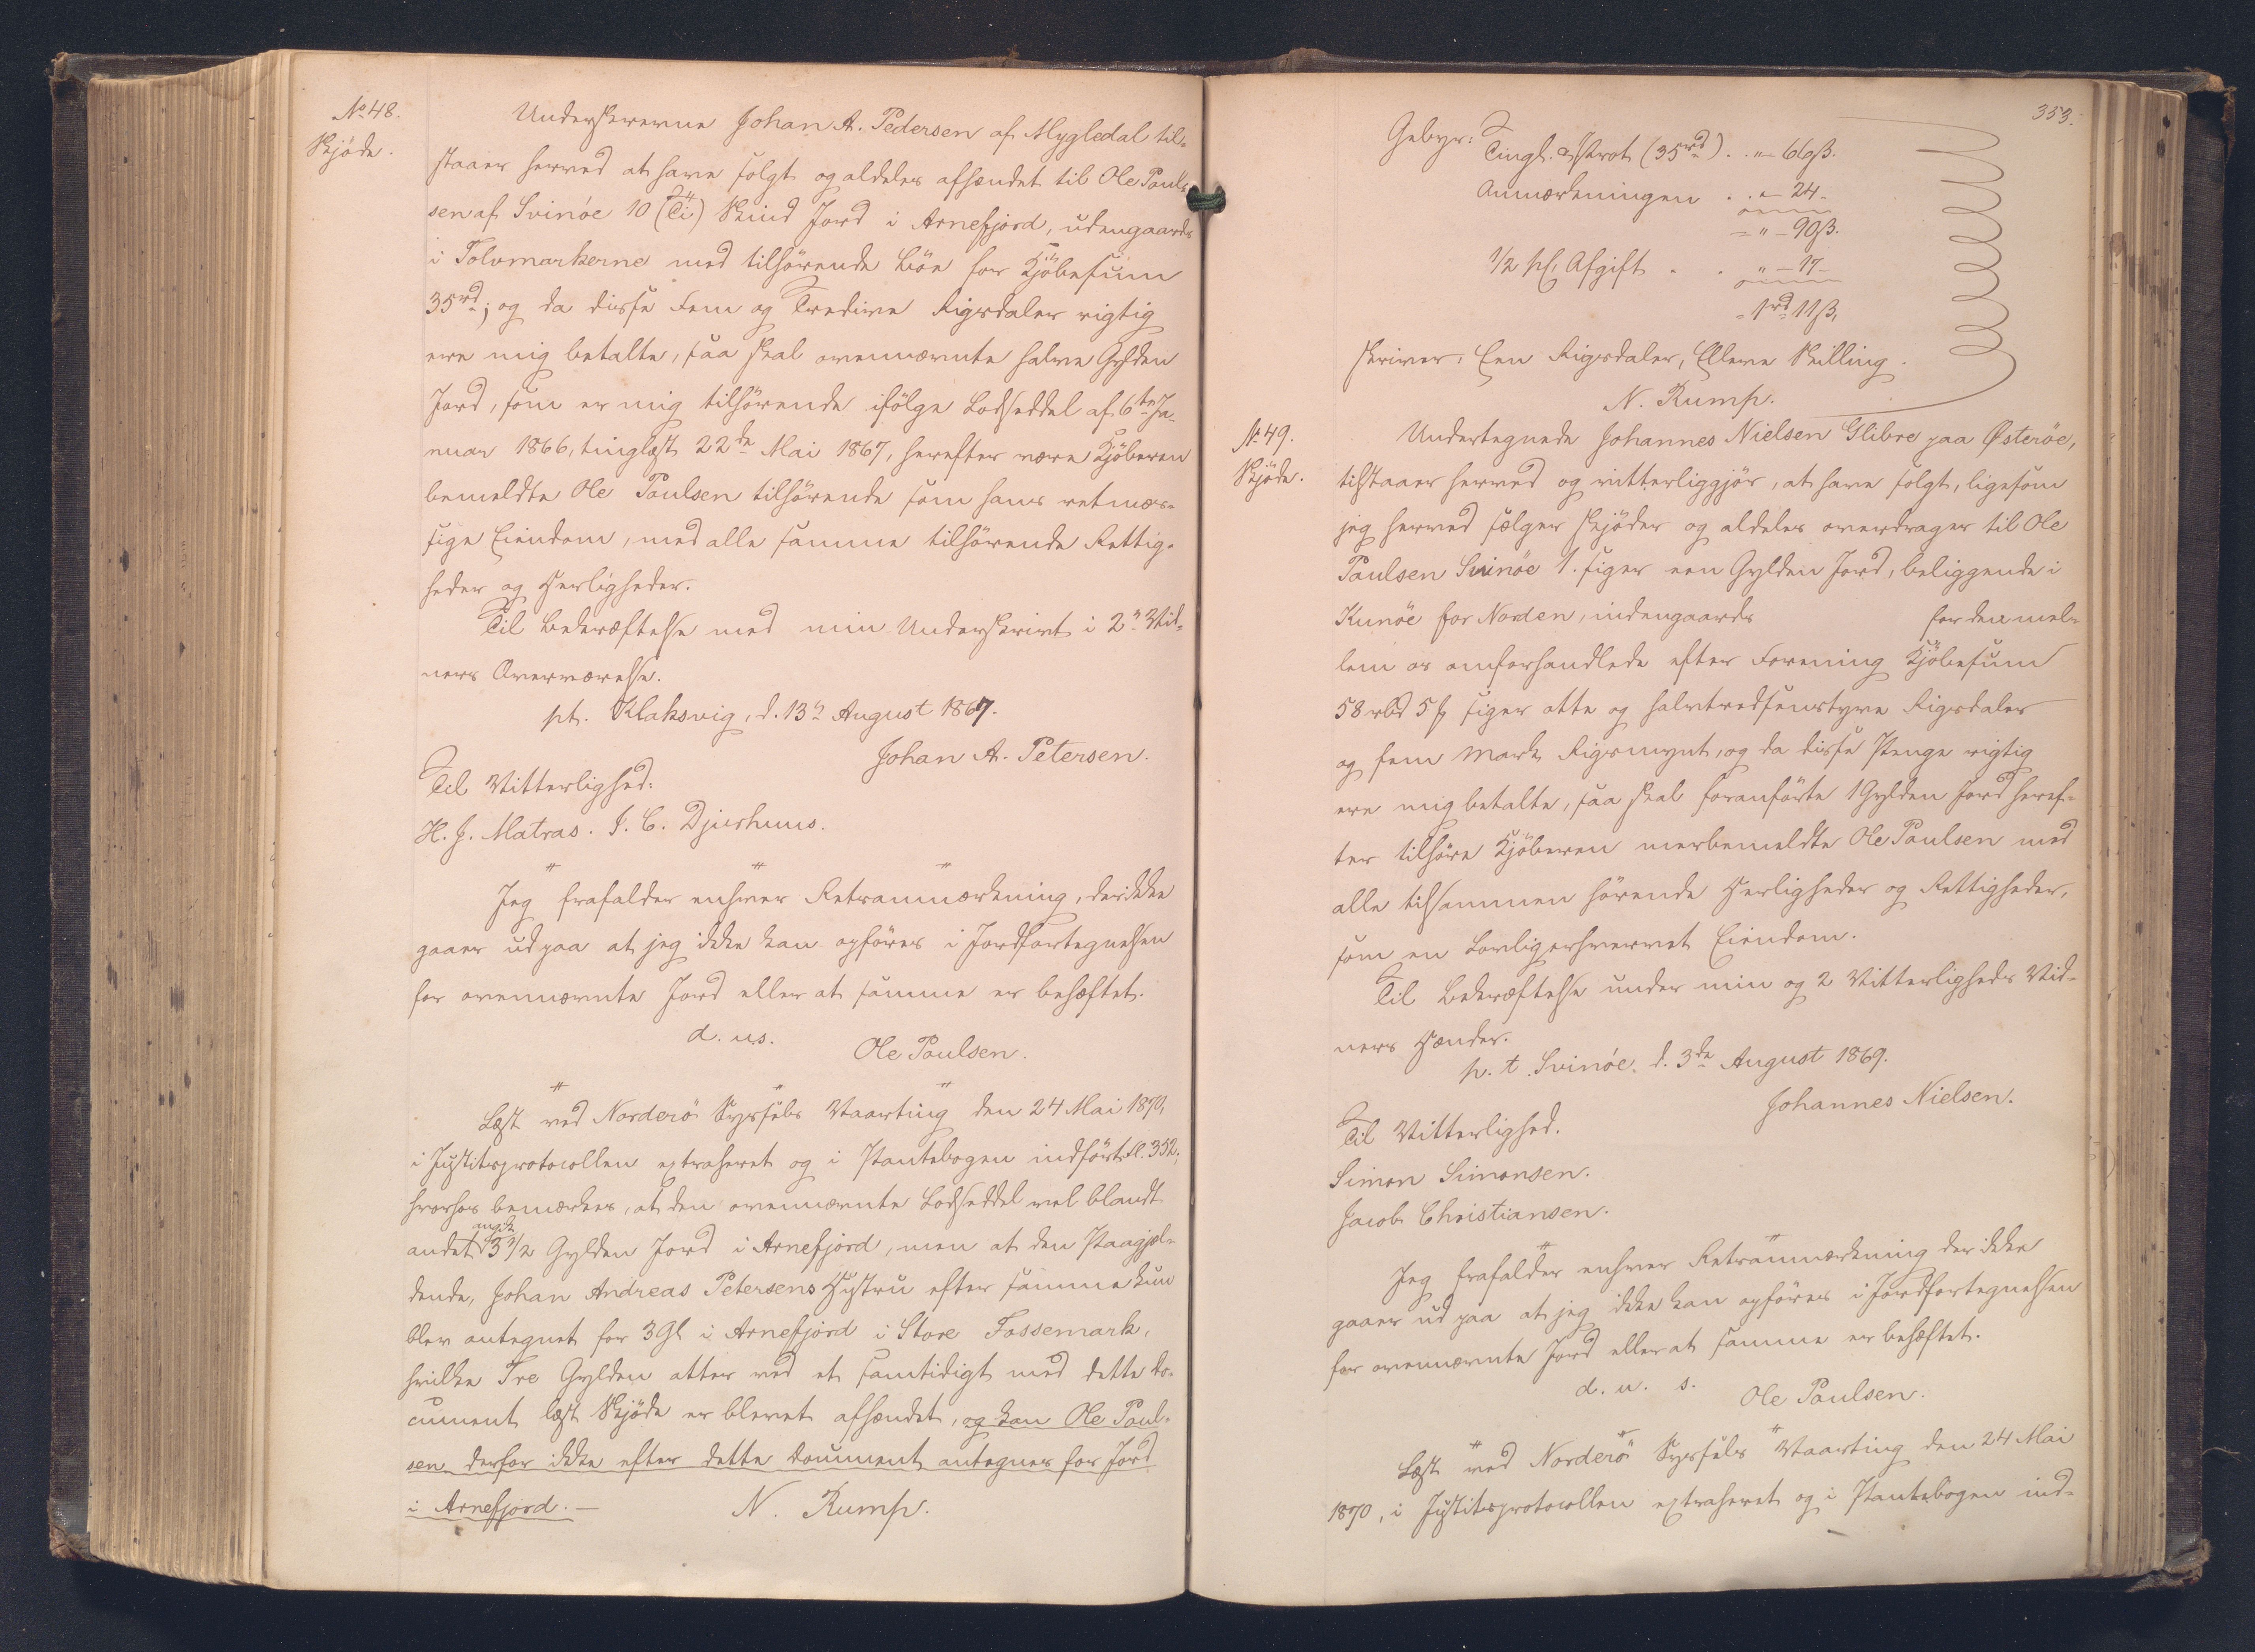 No 48.
Skjöde.
Underskrevne Johan A. Pedersen af Mygledal til-
staaer herved at have solgt og aldeles afhændet til Ole Pouls-
sen af Svinöe 10 (Ti) Skind Jord i Arnefjord, udengaards
i Tolvmarkerne med tilhörende Böe for Kjöbesum
35rd; og da disse Fem og Tredive Rigsdaler rigtig
ere mig betalte, saa skal ovennævnte halve Gylden
Jord, som er mig tilhörende ifölge Lodseddel af 6te Ja-
nuar 1866, tinglæst 22de Mai 1867, herefter være Kjöberen
bemeldte Ole Poulsen tilhörende som hans retmæs-
sige Eiendom, med alle samme tilhörende Rettig-
heder og Herligheder.
Til Bekræftelse med min Underskrivt i 2n Vid-
ners Overværelse.
pt. Klaksvig, d. 13n August 1867.
Johan A. Petersen.
Til Vitterlighed:
H. J. Matras. J. C. Djurhuus.
Jeg frafalder enhver Retsanmærkning, der ikke
gaaer ud paa at jeg ikke kan opföres i Jordfortegnelsen
for ovennævnte Jord eller at samme er behæftet.
d. u. s.
Ole Poulsen.
Læst ved Norderö Syssels Vaarting den 24 Mai 1870,
i Justitsprotocollen extraheret og i Pantebogen indfört Fl. 352;
hvorhos bemærkes, at den ovennævnte Lodseddel vel blandt
andet angik 3 1/2 Gylden Jord i Arnefjord, men at den Paagjæl-
dende, Johan Andreas Petersens Hustru efter samme kun
blev antegnet for 3 Gl i Arnefjord i Store Fossemark,
hvilke Tre Gylden atter ved et samtidigt med dette Do-
cument læst Skjöde er blevet afhændet, og kan Ole Poul-
sen derfor ikke efter dette Document antegnes for Jord
i Arnefjord. —
N. Rump.
353.
Gebyr: Tingl. & Prot (35rd) . . " 66ß.
Anmærkningen . . " 24 -
= " - 90ß.
1/2 pC. Afgift . . " - 17 -
= 1rd 11ß,
skriver: Een Rigsdaler, Elleve Skilling.
N. Rump.
No 49.
Skjöde.
Undertegnede Johannes Nielsen Glibre paa Østeröe,
tilstaaer herved og vitterliggjör, at have solgt, ligesom
jeg herved sælger skjöder og aldeles overdrager til Ole
Poulsen Svinöe 1. siger een Gylden Jord, beliggende i
Kunöe for Norden, indengaards for den mel-
lem os omforhandlede efter Forening Kjöbesum
58 rbd 5 ß siger otte og halvtredsenstyve Rigsdaler
og fem Mark Rigsmynt, og da disse Penge rigtig
ere mig betalte, saa skal foranförte 1 Gylden Jord heref-
ter tilhöre Kjöberen merbemeldte Ole Poulsen med
alle tilsammen hörende Herligheder og Rettigheder,
som en Lovligerhvervet Eiendom.
Til Bekræftelse under min og 2 Vitterligheds Vid-
ners Hænder.
p. t. Svinöe. d. 3de August 1869.
Johannes Nielsen.
Til Vitterlighed.
Simon Simonsen.
Jacob Christiansen.
Jeg frafalder enhver Retsanmærkning der ikke
gaaer ud paa at jeg ikke kan opföres i Jordfortegnelsen
for ovennævnte Jord eller at samme er behæftet.
d. u. s.
Ole Poulsen.
Læst ved Norderö Syssels Vaarting den 24 Mai
1870, i Justitsprotocollen extraheret og i Pantebogen ind-